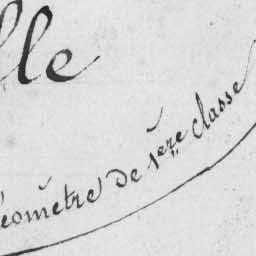 lle
éomètre de 1ere classe